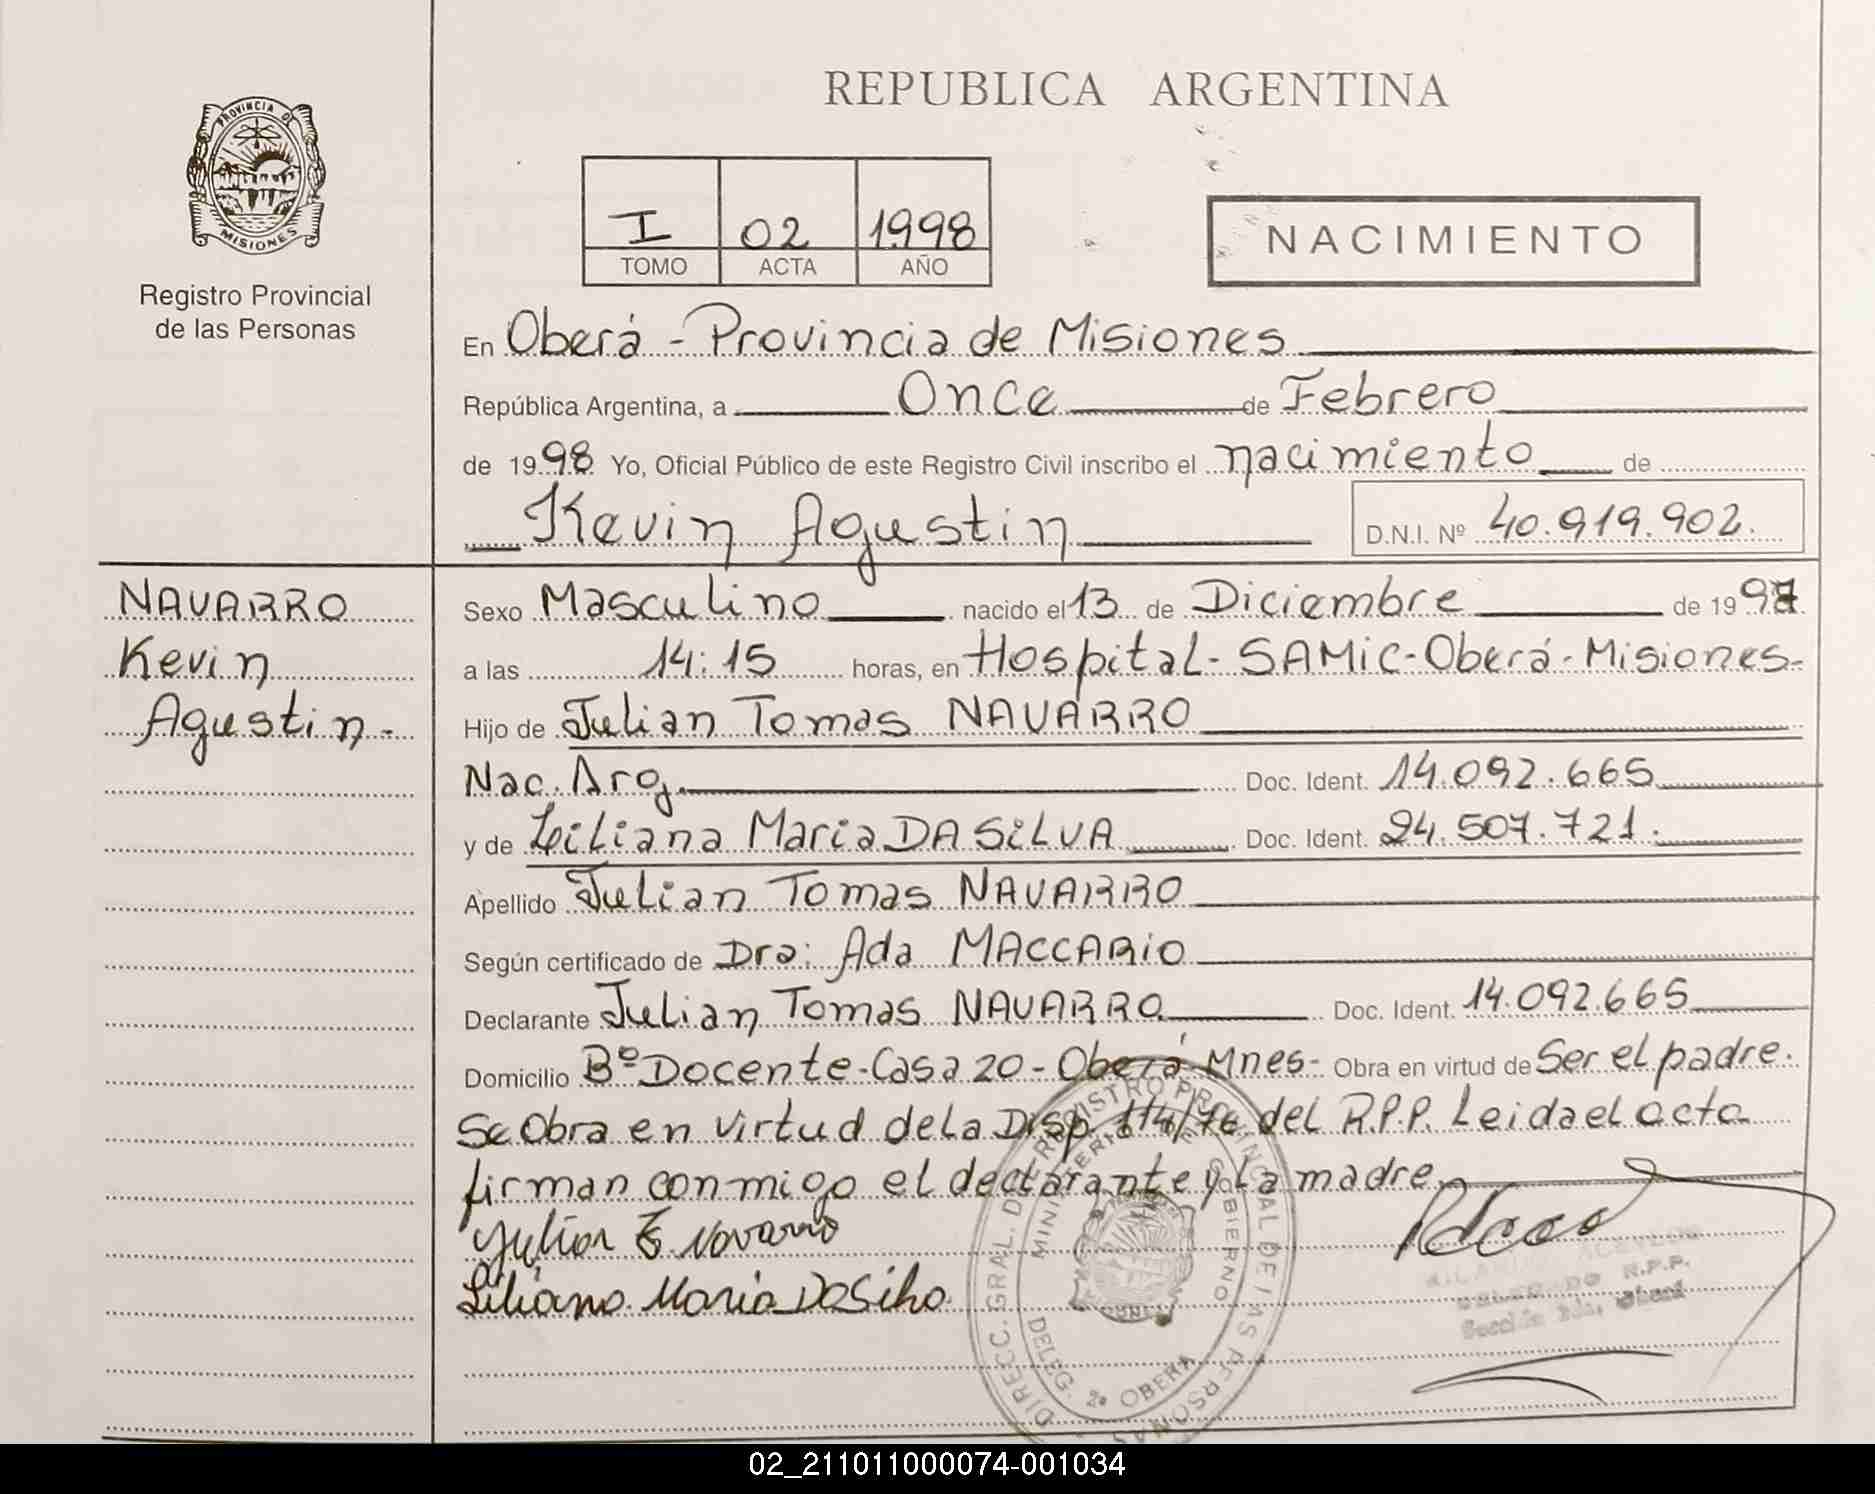 REPUBLICA ARGENTINA
PROVINCIA DE
MISIONES
Registro Provincial
de las Personas
I 02 1998
TOMO ACTA AÑO
NACIMIENTO
En Oberá - Provincia de Misiones
República Argentina, a Once de Febrero
de 1998 Yo, Oficial Público de este Registro Civil inscribo el nacimiento de
Kevin Agustin D.N.I. Nº 40.919.902.
NAVARRO
Kevin
Agustin-
Sexo Masculino nacido el 13 de Diciembre de 1997
a las 14:15 horas, en Hospital-SAMiC-Oberá-Misiones-
Hijo de Julian Tomas NAVARRO
Nac. Arg. Doc. Ident. 14.092.665
y de Liliana Maria DA SiLVA Doc. Ident. 24.507.721.
Apellido Julian Tomas NAVARRO
Según certificado de Dra: Ada MACCARiO
Declarante Julian Tomas NAVARRO Doc. Ident. 14.092.665
Domicilio Bº Docente-Casa 20-Oberá Mnes- Obra en virtud de Ser el padre.
Se Obra en virtud de la Disp. 114/76 del R.P.P. Leida el acta
firman conmigo el declarante y La madre.
Julian T. Navarro
Liliana Maria Da Silva
DIRECC. GRAL. DEL REGISTRO PROVINCIAL DE LAS PERSONAS
MINISTERIO DE GOBIERNO
DELEG. 2ª OBERA
ACEVEDO
R.P.P.
Sección 2da. Oberá
02_211011000074-001034